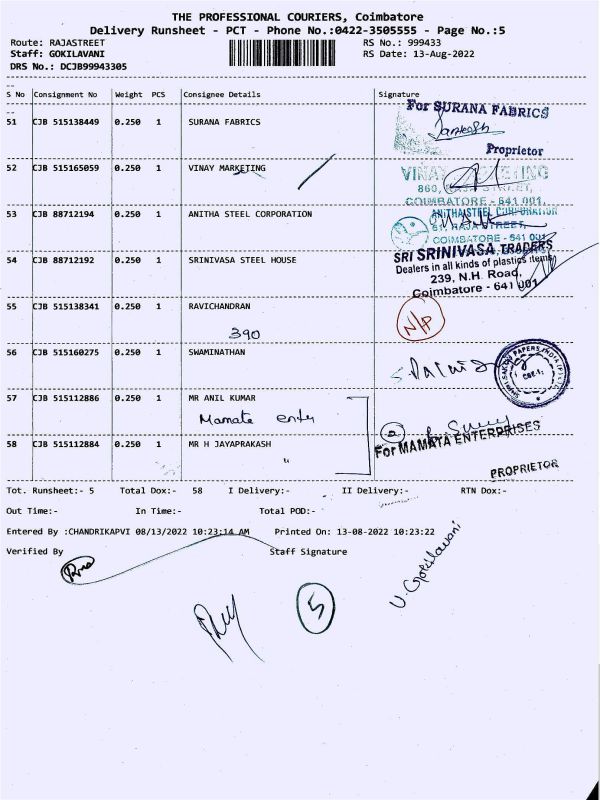 THE PROFESSIONAL COURIERS, Coimbatore
Delivery Runsheet - PCT - Phone No.:0422-3505555 - Page No.:5
Route: RAJASTREET RS No.: 999433
Staff: GOKILAVANI RS Date: 13-Aug-2022
DRS No.: DCJB99943305
S No Consignment No Weight PCS Consignee Details Signature
51 CJB 515138449 0.250 1 SURANA FABRICS
For SURANA FABRICS
Proprietor
52 CJB 515165059 0.250 1 VINAY MARKETING
VINAY
860, RAJA STREET,
COIMBATORE - 641 001.
53 CJB 88712194 0.250 1 ANITHA STEEL CORPORATION
ANITHA STEEL CORPORATION
61, RAJA STREET,
COIMBATORE - 641 001
54 CJB 88712192 0.250 1 SRINIVASA STEEL HOUSE
SRI SRINIVASA TRADERS
Dealers in all kinds of plastics items
239, N.H. Road,
Coimbatore - 641 001
55 CJB 515138341 0.250 1 RAVICHANDRAN
390
N/P
56 CJB 515160275 0.250 1 SWAMINATHAN
PAPERS INDIA (P) LTD
CBE-1.
57 CJB 515112886 0.250 1 MR ANIL KUMAR
Mamata enter
58 CJB 515112884 0.250 1 MR H JAYAPRAKASH
"
For MAMATA ENTERPRISES
PROPRIETOR
Tot. Runsheet:- 5 Total Dox:- 58 I Delivery:- II Delivery:- RTN Dox:-
Out Time:- In Time:- Total POD:-
Entered By :CHANDRIKAPVI 08/13/2022 10:23:14 AM Printed On: 13-08-2022 10:23:22
Verified By Staff Signature
U. Gokilavani
5